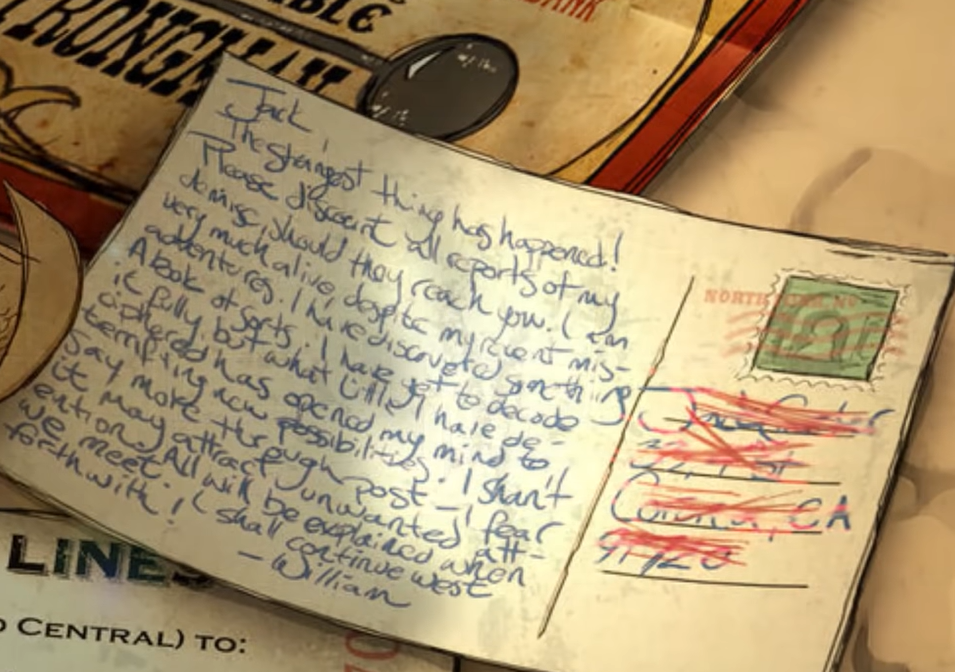 BLE
BANK
TRONGMAN
Jack
The strangest thing has happened!
Please discount all reports of my
demise, should they reach you. I am
very much alive, despite my recent mis-
adventures. I have discovered something
A book of sorts. I have yet to decode
it fully, but what little I have de-
ciphered has opened my mind to
terrifying new possibilities. I shan't
say more through post — I fear
it may attract unwanted att-
ention. All will be explained when
we meet. I shall continue west
forthwith!
— William
NORTH
CA
LINES
CENTRAL) TO: